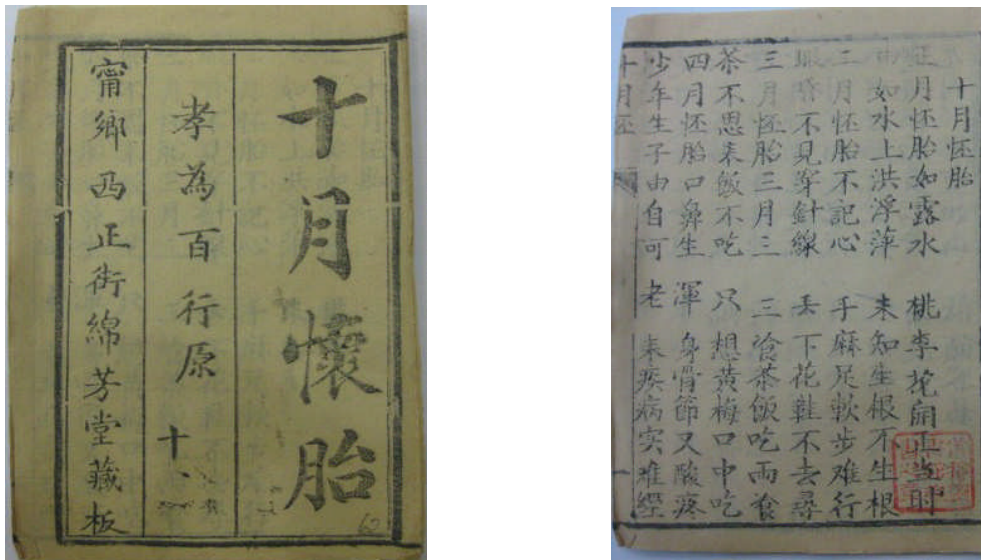 十月懷胎
孝為百行原
十
甯鄉西正街綿芳堂藏板
62
十月怌胎
正月怌胎如露水 桃李花開正當时
由如水上洪浮萍 未知生根不生根
二月怌胎不記心 手麻足軟步难行
眼昏不見穿針線 丢下花鞋不去尋
三月怌胎三月三 三飡茶飯吃両飡
茶不思来飯不吃 只想黄梅口中吃
四月怌胎口鼻生 渾身骨節又酸疼
少年生子由自可 老来疾病实难經
十月怌 一